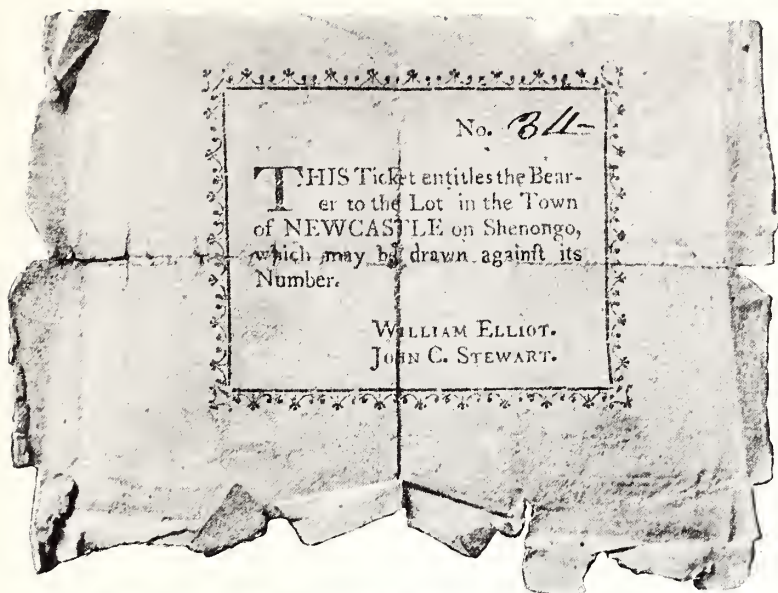 No. 34
THIS Ticket entitles the Bear-
er to the Lot in the Town
of NEWCASTLE on Shenongo,
which may be drawn againſt its
Number.
WILLIAM ELLIOT.
JOHN C. STEWART.